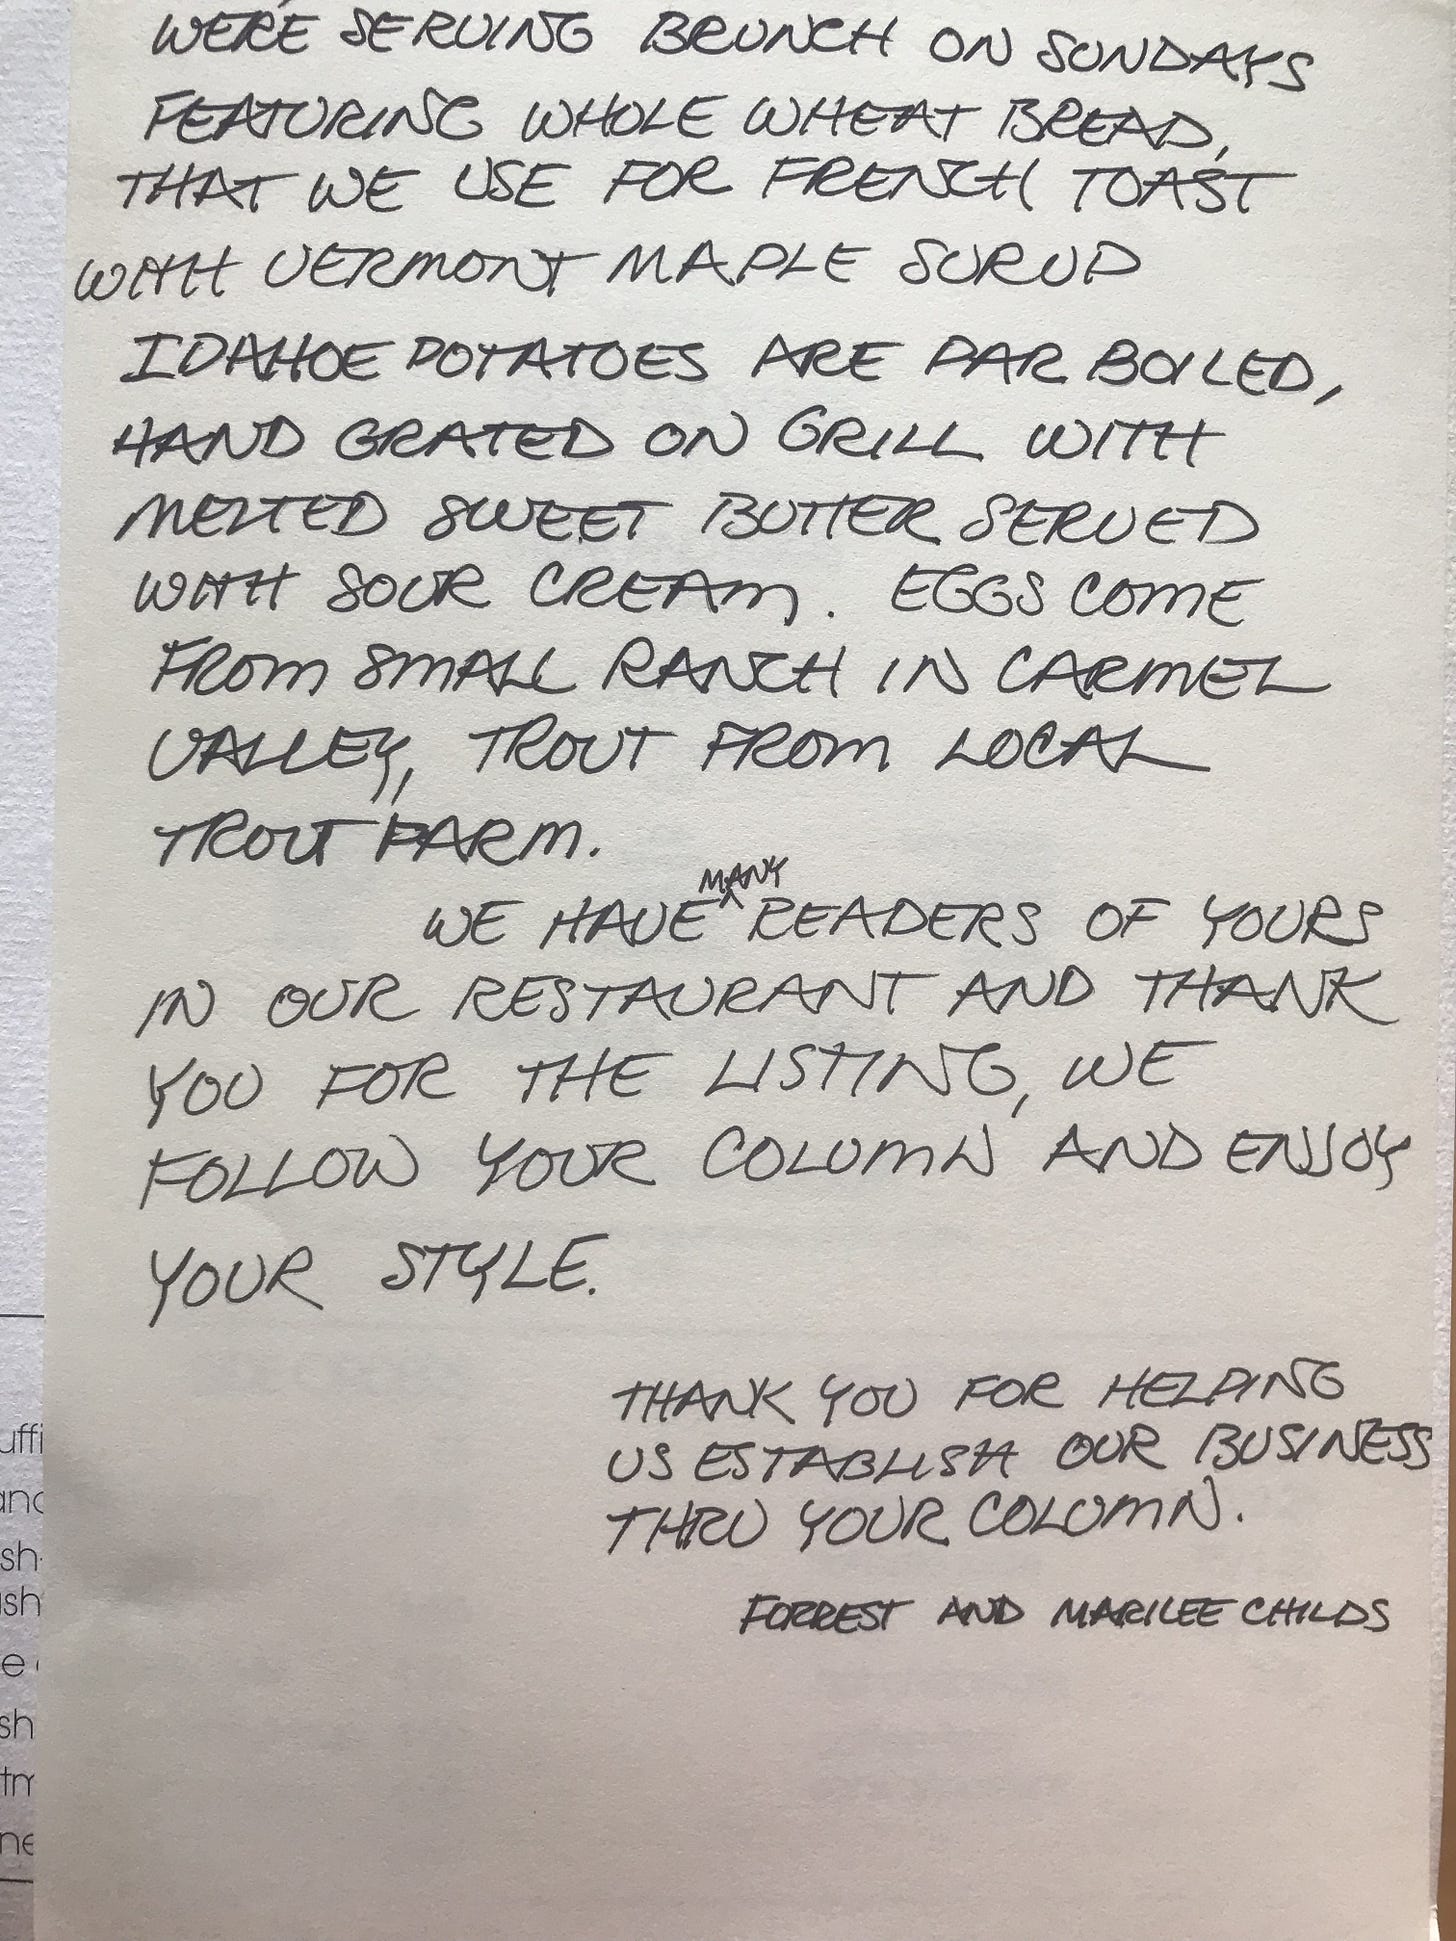 WE'RE SERVING BRUNCH ON SUNDAYS
FEATURING WHOLE WHEAT BREAD,
THAT WE USE FOR FRENCH TOAST
WITH VERMONT MAPLE SURUP
IDAHOE POTATOES ARE PAR BOILED,
HAND GRATED ON GRILL WITH
MELTED SWEET BUTTER SERVED
WITH SOUR CREAM. EGGS COME
FROM SMALL RANCH IN CARMEL
VALLEY, TROUT FROM LOCAL
TROUT FARM.
WE HAVE MANY READERS OF YOURS
IN OUR RESTAURANT AND THANK
YOU FOR THE LISTING, WE
FOLLOW YOUR COLUMN AND ENJOY
YOUR STYLE.
THANK YOU FOR HELPING
US ESTABLISH OUR BUSINESS
THRU YOUR COLUMN.
FORREST AND MARILEE CHILDS